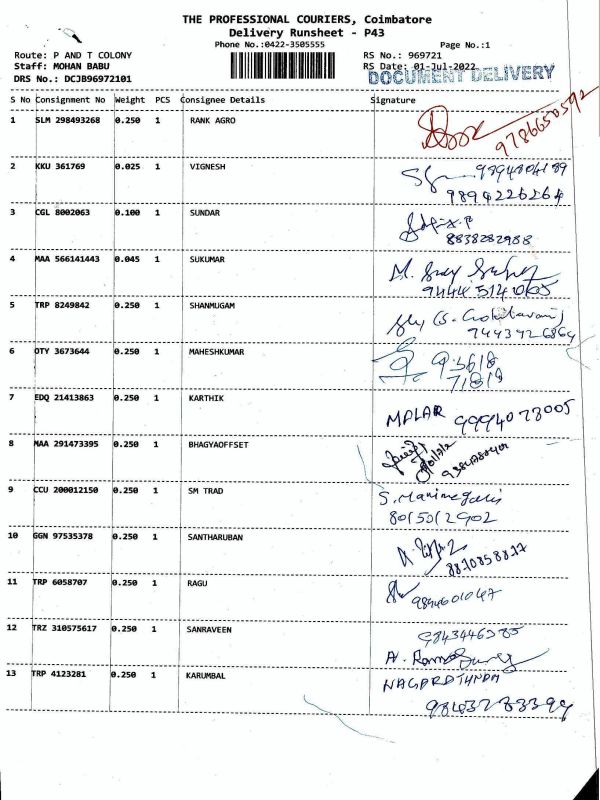 THE PROFESSIONAL COURIERS, Coimbatore
Delivery Runsheet - P43
Phone No.:0422-3505555 Page No.:1
Route: P AND T COLONY RS No.: 969721
Staff: MOHAN BABU RS Date: 01-Jul-2022
DRS No.: DCJB96972101 DOCUMENT DELIVERY
S No Consignment No Weight PCS Consignee Details Signature
1 SLM 298493268 0.250 1 RANK AGRO
9786650592
2 KKU 361769 0.025 1 VIGNESH
9894226264
3 CGL 8002063 0.100 1 SUNDAR
8838282988
4 MAA 566141443 0.045 1 SUKUMAR
9444514065
5 TRP 8249842 0.250 1 SHANMUGAM
7443926864
6 OTY 3673644 0.250 1 MAHESHKUMAR
93618
71818
7 EDQ 21413863 0.250 1 KARTHIK
MALAR 9994073005
8 MAA 291473395 0.250 1 BHAGYAOFFSET
9 CCU 200012150 0.250 1 SM TRAD
S. Manimegalai
8015012902
10 GGN 97535378 0.250 1 SANTHARUBAN
8870858877
11 TRP 6058707 0.250 1 RAGU
9894601047
12 TRZ 310575617 0.250 1 SANRAVEEN
13 TRP 4123281 0.250 1 KARUMBAL